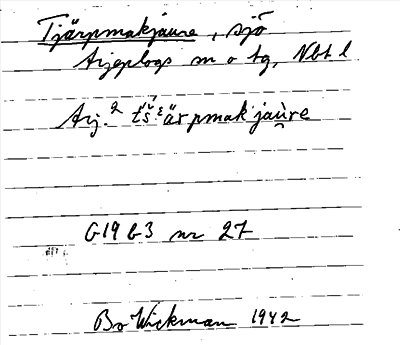 Tjärpmakjaure, sjö
Arjeplogs sn o tg, Nbt l
Arj.² t́š́ᵋärpmakjaùre
G19 b3 nr 27
Bo Wickman 1942